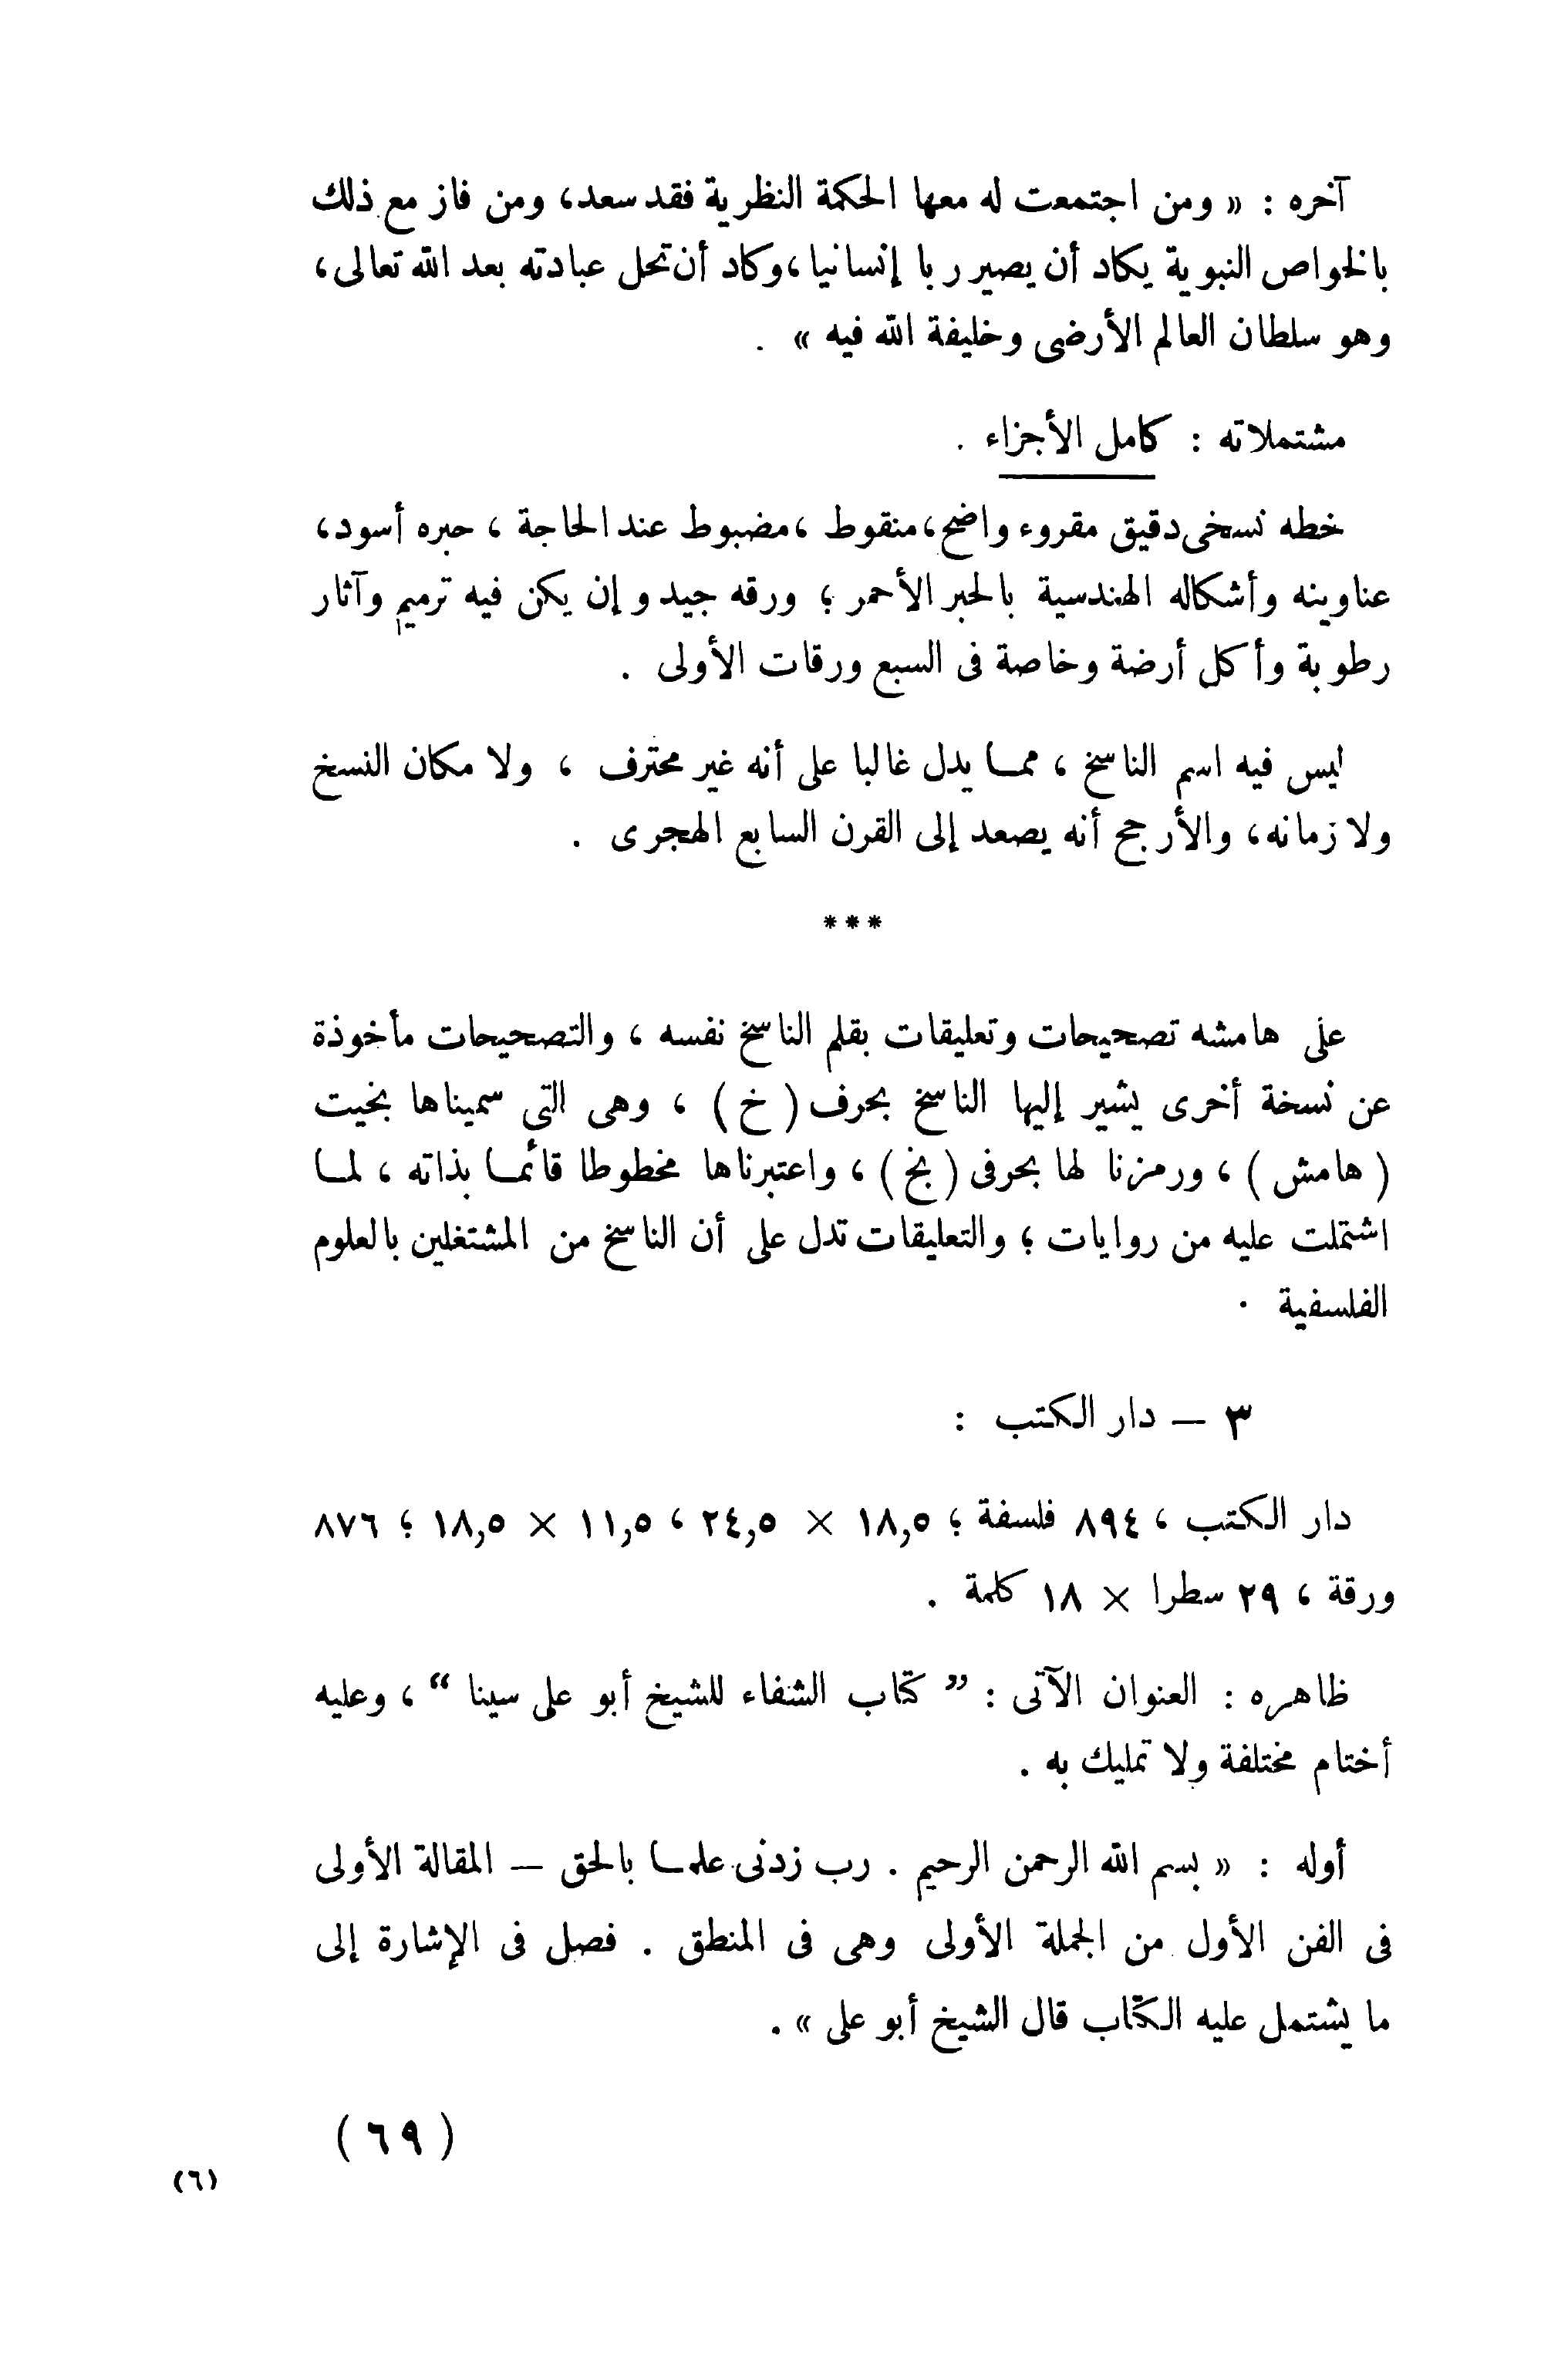 آخره : « ومن اجتمعت له معها الحكمة النظرية فقد سعد، ومن فاز مع ذلك
بالخواص النبوية يكاد أن يصير ربا إنسانيا ، وكاد أن تحل عبادته بعد الله تعالى ،
وهو سلطان العالم الأرضى وخليفة الله فيه » .
مشتملاته : كامل الأجزاء .
خطه نسخى دقيق مقروء واضح ، منقوط ، مضبوط عند الحاجة ، حبره أسود ،
عناوينه وأشكاله الهندسية بالحبر الأحمر ؛ ورقه جيد وإن يكن فيه ترميم وآثار
رطوبة وأكل أرضة وخاصة فى السبع ورقات الأولى .
ليس فيه اسم الناسخ ، مما يدل غالبا على أنه غير محترف ، ولا مكان النسخ
ولا زمانه ، والأرجح أنه يصعد إلى القرن السابع الهجرى .
***
على هامشه تصحيحات وتعليقات بقلم الناسخ نفسه ، والتصحيحات مأخوذة
عن نسخة أخرى يشير إليها الناسخ بحرف ( خ ) ، وهى التى سميناها بخيت
( هامش ) ، ورمزنا لها بحرفى ( بخ ) ، واعتبرناها مخطوطا قائما بذاته ، لما
اشتملت عليه من روايات ؛ والتعليقات تدل على أن الناسخ من المشتغلين بالعلوم
الفلسفية .
٣ — دار الكتب :
دار الكتب ، ٨٩٤ فلسفة ؛ ١٨,٥ × ٢٤,٥ ، ١١,٥ × ١٨,٥ ؛ ٨٧٦
ورقة ، ٢٩ سطرا × ١٨ كلمة .
ظاهره : العنوان الآتى : ” كتاب الشفاء للشيخ أبو على سينا “ ، وعليه
أختام مختلفة ولا تمليك به .
أوله : « بسم الله الرحمن الرحيم . رب زدنى علما بالحق — المقالة الأولى
فى الفن الأول من الجملة الأولى وهى فى المنطق . فصل فى الإشارة إلى
ما يشتمل عليه الكتاب قال الشيخ أبو على » .
( ٦٩ )
(٦)